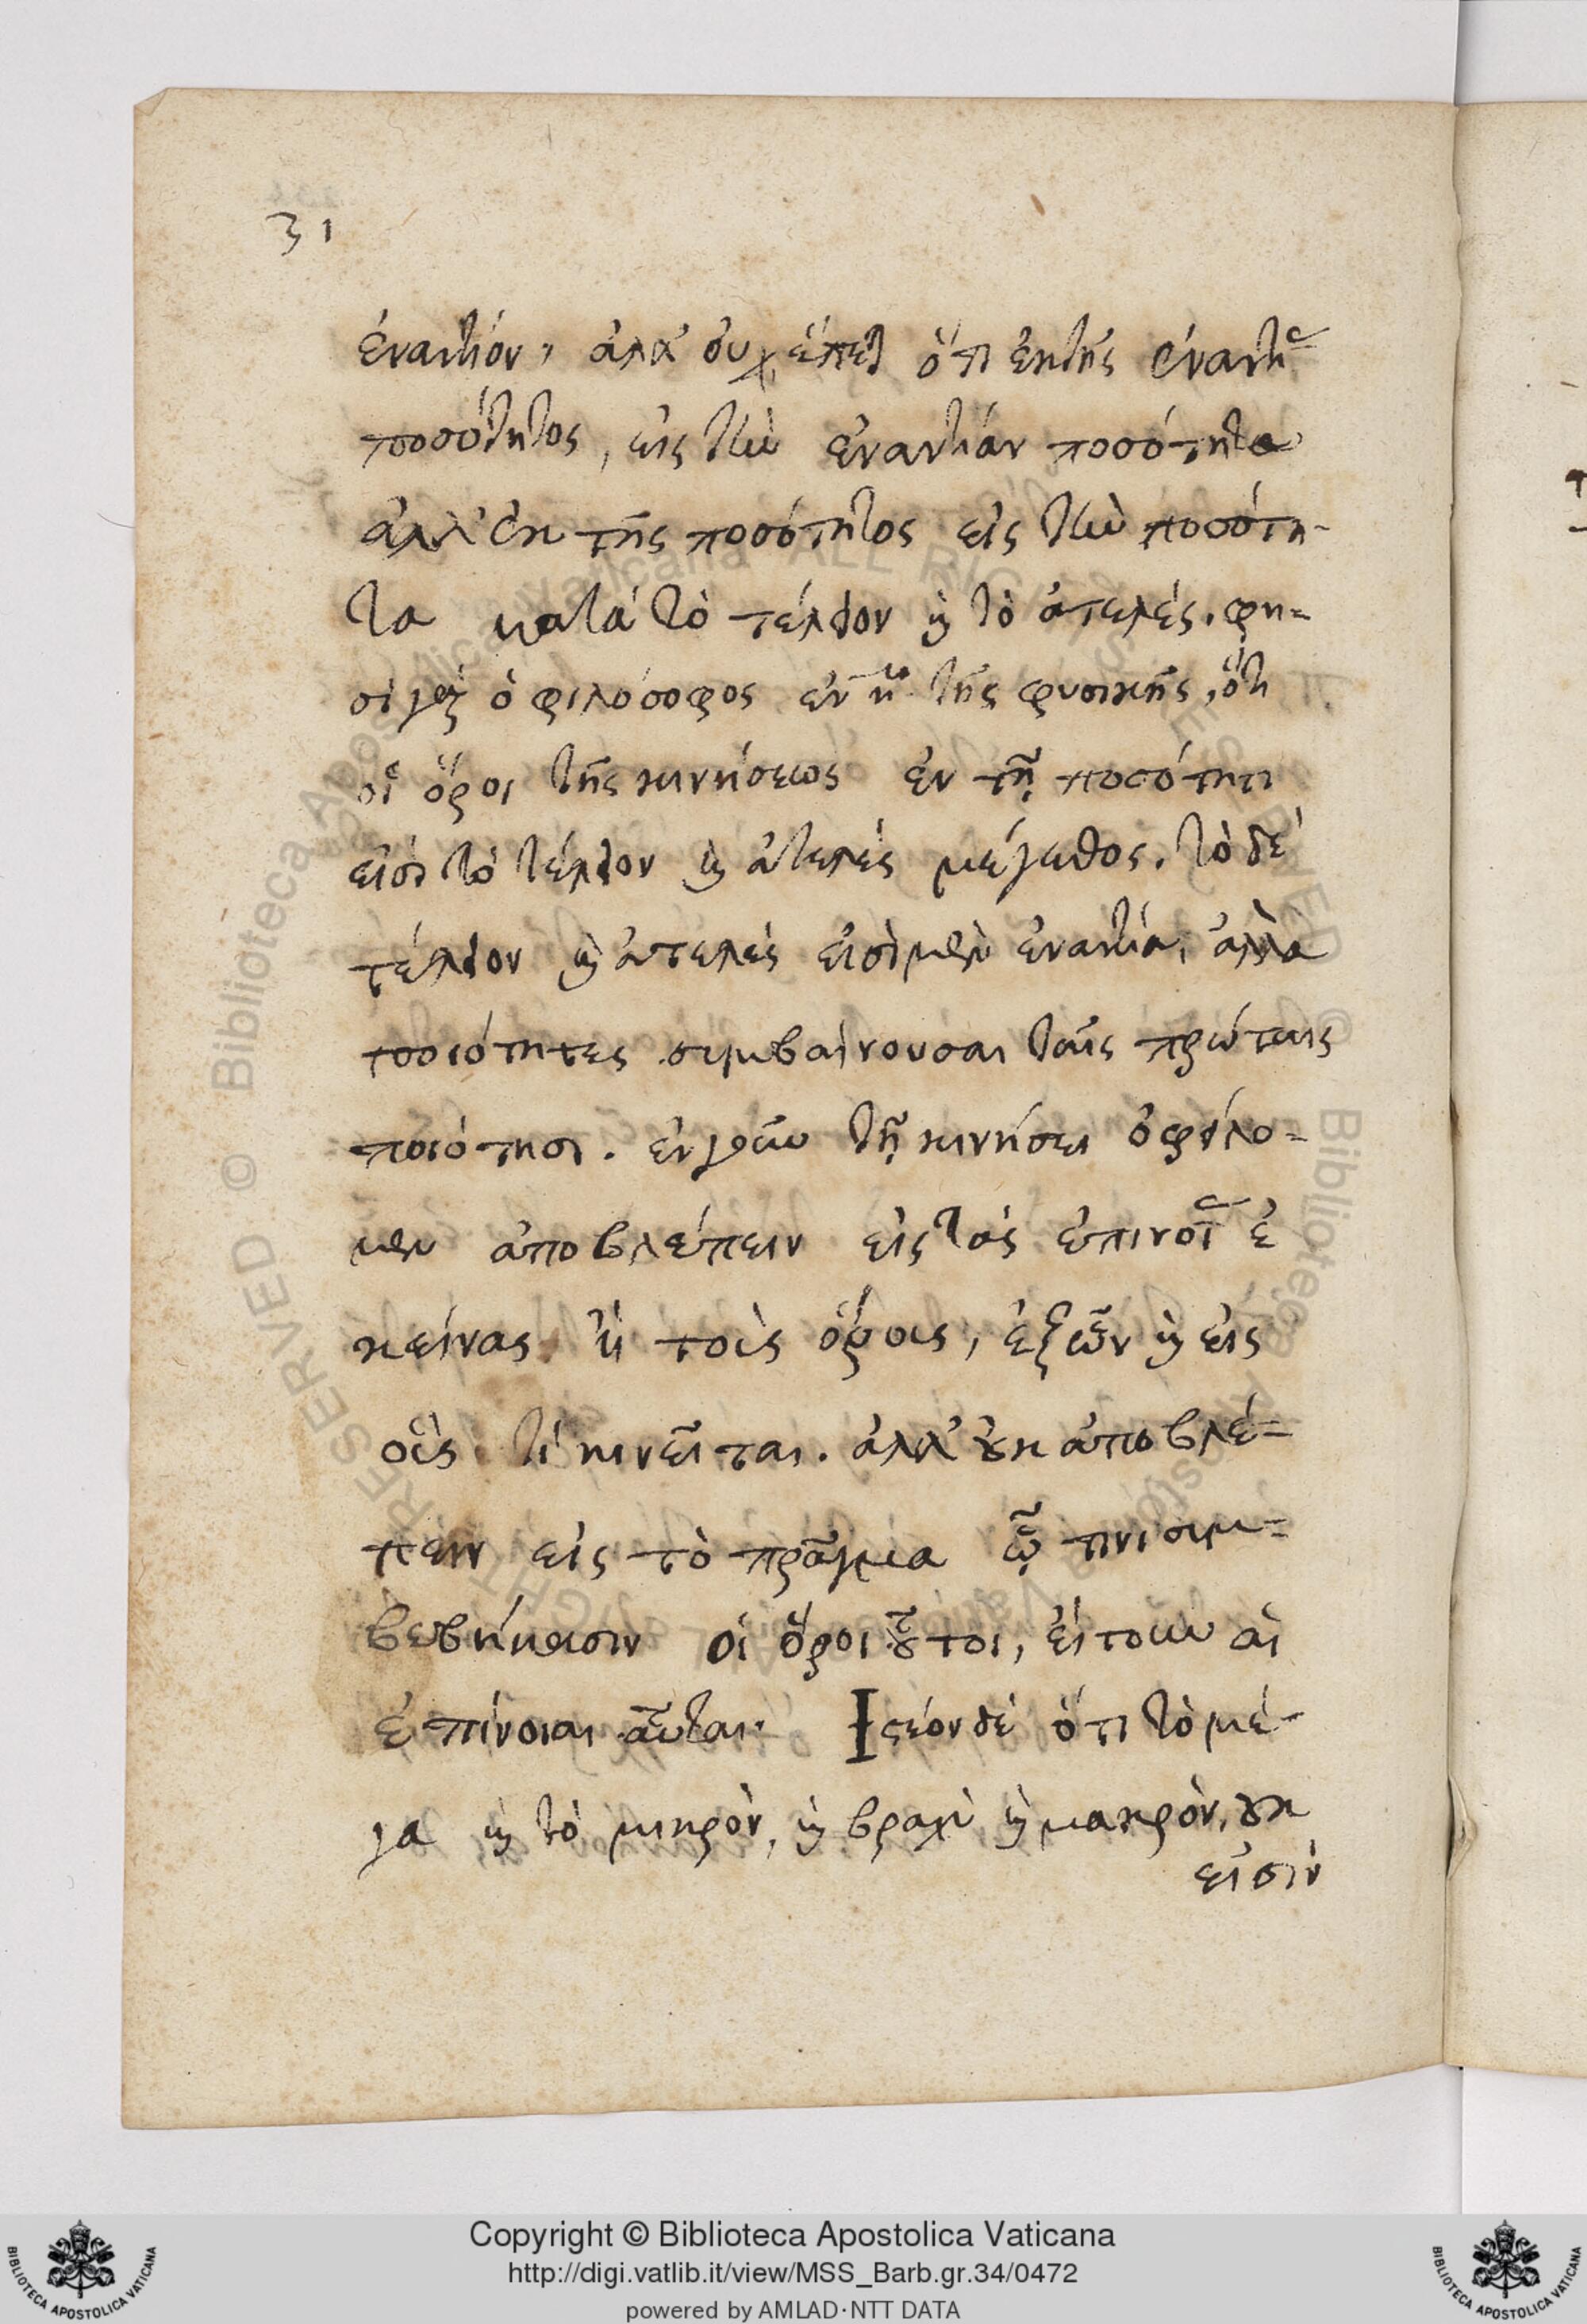 31
ἐναντίον, ἀλλ' οὐχ ἕπεται ὅτι ἐκ τῆς ἐναντίας
ποσότητος, εἰς τὴν ἐναντίαν ποσότητα
ἀλλ' ἐκ τῆς ποσότητος εἰς τὴν ποσότη-
τα κατὰ τὸ τέλειον καὶ τὸ ἀτελές. φη-
σὶ γὰρ ὁ φιλόσοφος ἐν τῆς φυσικῆς, ὅτι
οἱ ὅροι τῆς κινήσεως ἐν τῇ ποσότητι
εἰσὶ τὸ τέλειον καὶ ἀτελὲς μέγεθος. τὸ δὲ
τέλειον καὶ ἀτελὲς εἰσὶ μὲν ἐναντία, ἀλλὰ
ποιότητες συμβαίνουσαι ταῖς πρώταις
ποιότησι. ἐν γοῦν τῇ κινήσει ὀφείλο-
μεν ἀποβλέπειν εἰς τὰς ἐπινοίας ἐ
κείνας ἢ τοὺς ὅρους, ἐξ ὧν καὶ εἰς
οὓς τί κινεῖται. ἀλλ' οὐκ ἀποβλέ-
πειν εἰς τὸ πρᾶγμα ᾧ τινι συμ-
βεβήκασιν οἱ ὅροι οὗτοι, εἴτουν αἱ
ἐπίνοιαι αὗται. Ἰστέον δὲ ὅτι τὸ μέ-
γα καὶ τὸ μικρὸν, καὶ βραχὺ καὶ μακρὸν, οὐκ
εἰσὶν
Copyright © Biblioteca Apostolica Vaticana
http://digi.vatlib.it/view/MSS_Barb.gr.34/0472
powered by AMLAD·NTT DATA
BIBLIOTECA APOSTOLICA VATICANA
BIBLIOTECA APOSTOLICA VATICANA